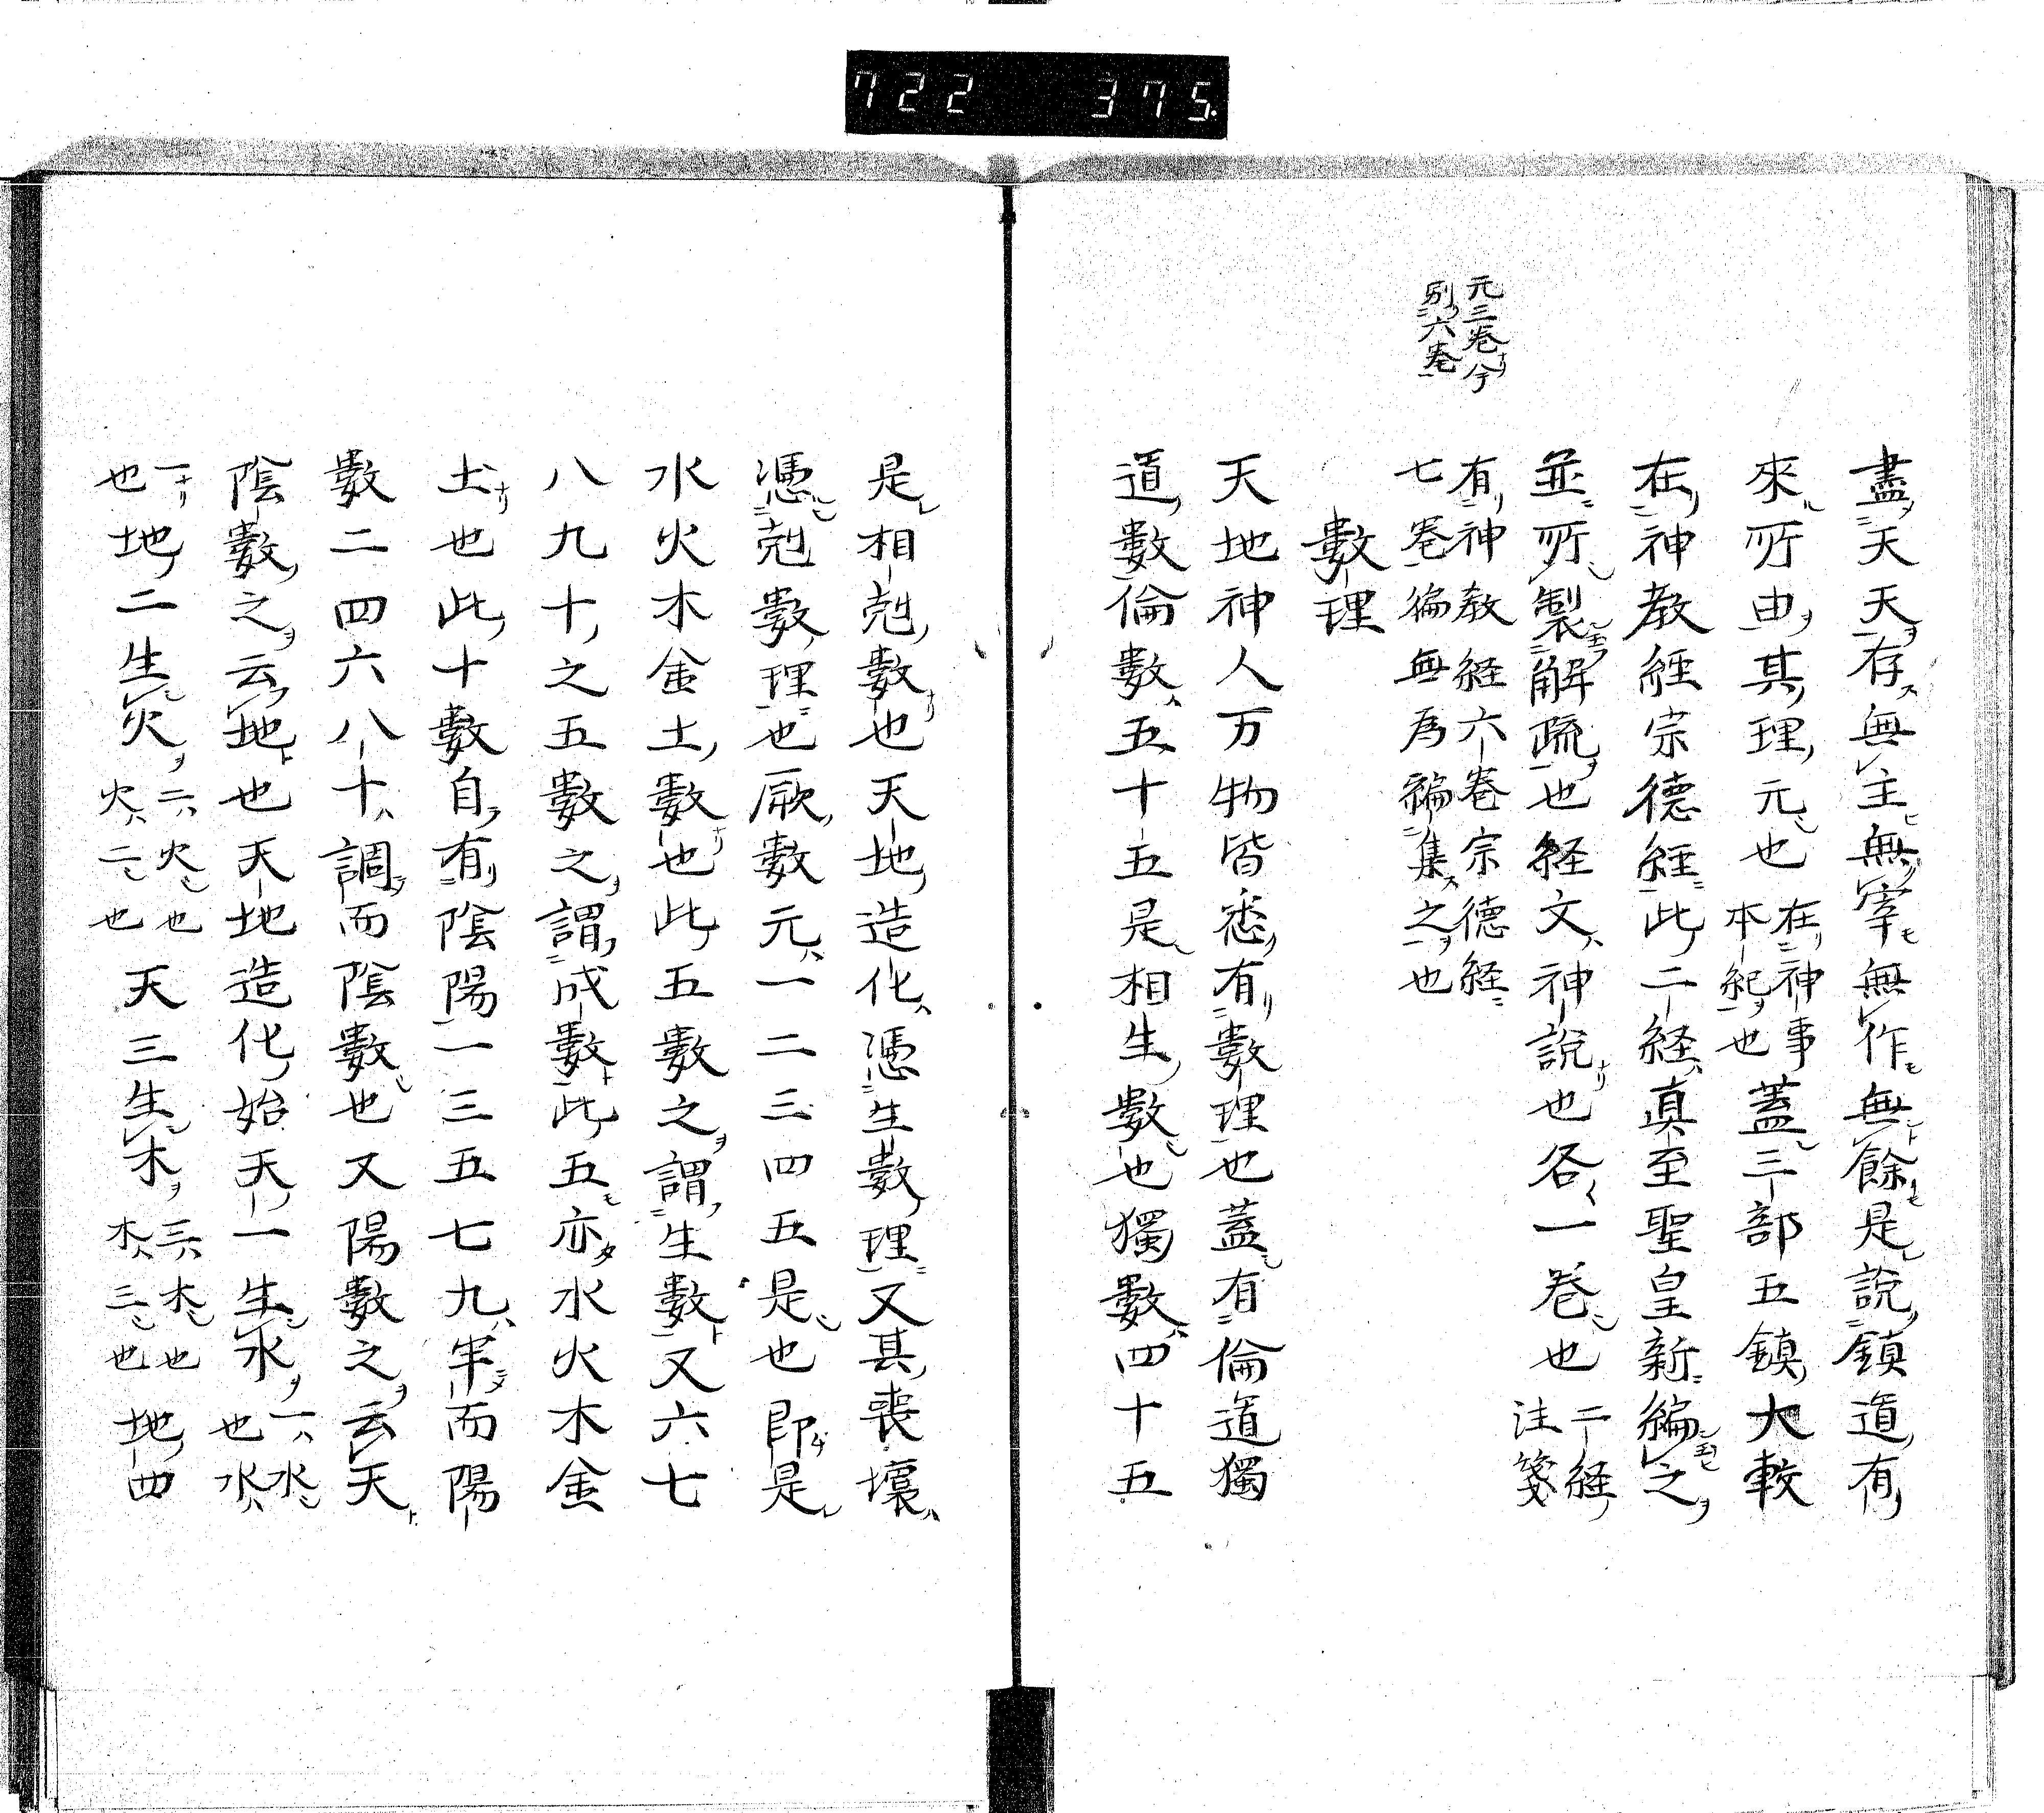 722 375
元三卷ナリ今
別ツ六卷ニ
盡天天存無主無宰無作無餘是說鎮道有
來所由其理元也在神事本紀也蓋三部五鎮大教
在神教經宗德經此二経真至聖皇新編之
並所製解疏也経文神說也各一卷也二経注箋
有神教経六卷宗德経
七卷編無為編集之也
數理
天地神人万物皆悉有數理也蓋有倫道獨
道數倫數五十五是相生數也獨數四十五
是相剋數也天地造化憑生數理又其喪壞
憑剋數理也厥數元一二三四五是也即是
水火木金土數也此五數之謂生數又六七
八九十之五數之謂成數此五亦水火木金
土也此十數自有陰陽一三五七九牢而陽
數二四六八十調而陰數也又陽數之云天
陰數之云地也天地造化始天一生水一水也水
一也地二生火二火也火二也天三生木三木也木三也地四